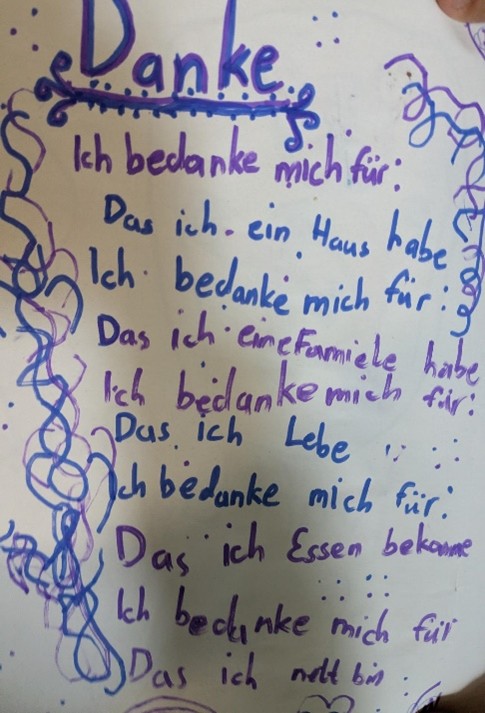 Danke
Ich bedanke mich für:
Das ich ein Haus habe
Ich bedanke mich für:
Das ich eine Familele habe
Ich bedanke mich für:
Das ich Lebe
Ich bedanke mich für:
Das ich Essen bekomme
Ich bedanke mich für
Das ich nett bin